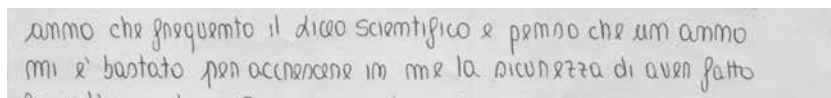 anno che frequento il liceo scientifico e penso che un anno
mi e' bastato per accrescere in me la sicurezza di aver fatto